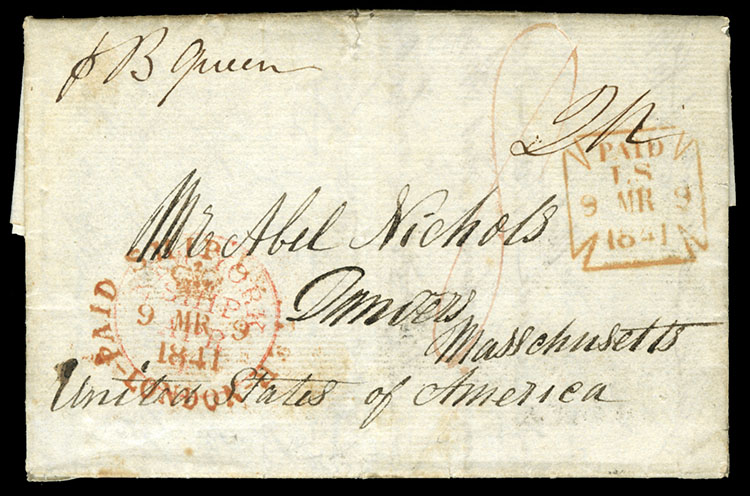 p B Queen
PAID
LS
9 MR 9
1841
Mr Abel Nichols
Danvers
Massachusetts
United States of America
PAID SHIP LONDON
9 MR 9
1841